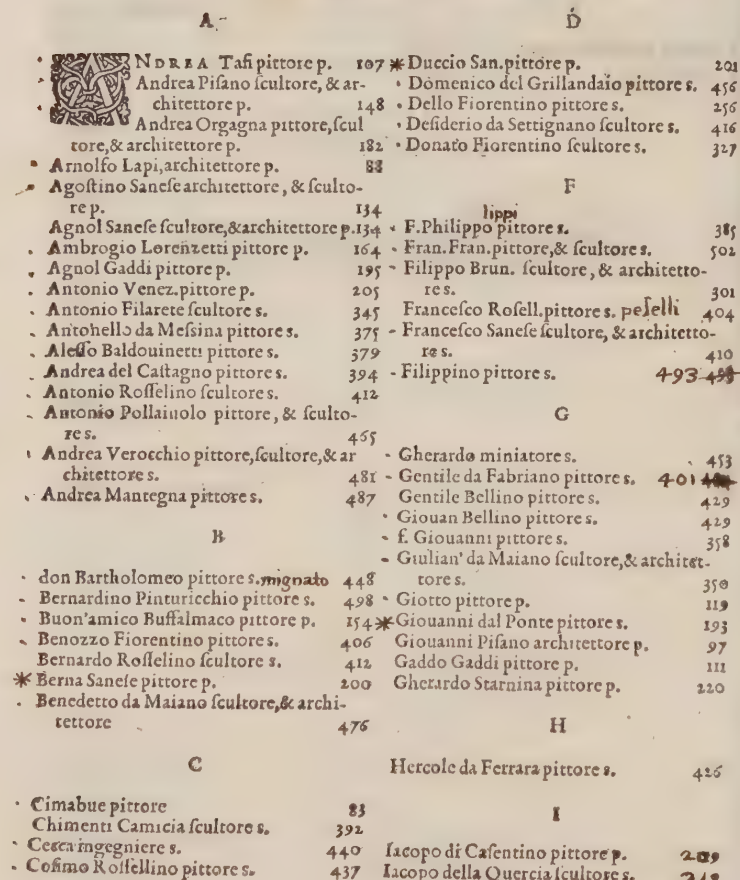 A
ANDREA Tafi pittore p. 107
Andrea Piſano ſcultore, & ar-
chitettore p. 148
Andrea Orgagna pittore, ſcul
tore, & architettore p. 182
Arnolfo Lapi, architettore p. 83
Agoſtino Saneſe architettore, & ſculto-
re p. 134
Agnol Saneſe ſcultore, & architettore p. 134
Ambrogio Lorenzetti pittore p. 164
Agnol Gaddi pittore p. 195
Antonio Venez. pittore p. 205
Antonio Filarete ſcultore s. 345
Antonello da Meſsina pittore s. 375
Aleſſo Baldouinetti pittore s. 379
Andrea del Caſtagno pittore s. 394
Antonio Roſſelino ſcultore s. 412
Antonio Pollaiuolo pittore, & ſculto-
re s. 465
Andrea Verocchio pittore, ſcultore, & ar
chitettore s. 481
Andrea Mantegna pittore s. 487
B
don Bartholomeo pittore s. mignato 448
Bernardino Pinturicchio pittore s. 498
Buon'amico Buffalmaco pittore p. 154
Benozzo Fiorentino pittore s. 406
Bernardo Roſſelino ſcultore s. 412
* Berna Saneſe pittore p. 200
Benedetto da Maiano ſcultore, & archi-
tettore 476
C
Cimabue pittore 83
Chimenti Camicia ſcultore s. 392
Cecca ingegniere s. 440
Coſimo Roſſellino pittore s. 437
D
* Duccio San. pittore p. 201
Domenico del Grillandaio pittore s. 456
Dello Fiorentino pittore s. 256
Deſiderio da Settignano ſcultore s. 416
Donato Fiorentino ſcultore s. 327
F
lippi
F. Philippo pittore s. 385
Fran. Fran. pittore, & ſcultore s. 502
Filippo Brun. ſcultore, & architetto-
re s. 301
Franceſco Roſell. pittore s. peſelli 404
Franceſco Saneſe ſcultore, & architetto-
re s. 410
Filippino pittore s. 493
G
Gherardo miniatore s. 453
Gentile da Fabriano pittore s. 401
Gentile Bellino pittore s. 429
Giouan Bellino pittore s. 429
f. Giouanni pittore s. 358
Giulian' da Maiano ſcultore, & architet-
tore s. 350
Giotto pittore p. 119
* Giouanni dal Ponte pittore s. 193
Giouanni Piſano architettore p. 97
Gaddo Gaddi pittore p. 111
Gherardo Starnina pittore p. 220
H
Hercole da Ferrara pittore s. 426
I
Iacopo di Caſentino pittore p.
Iacopo della Quercia ſcultore s.